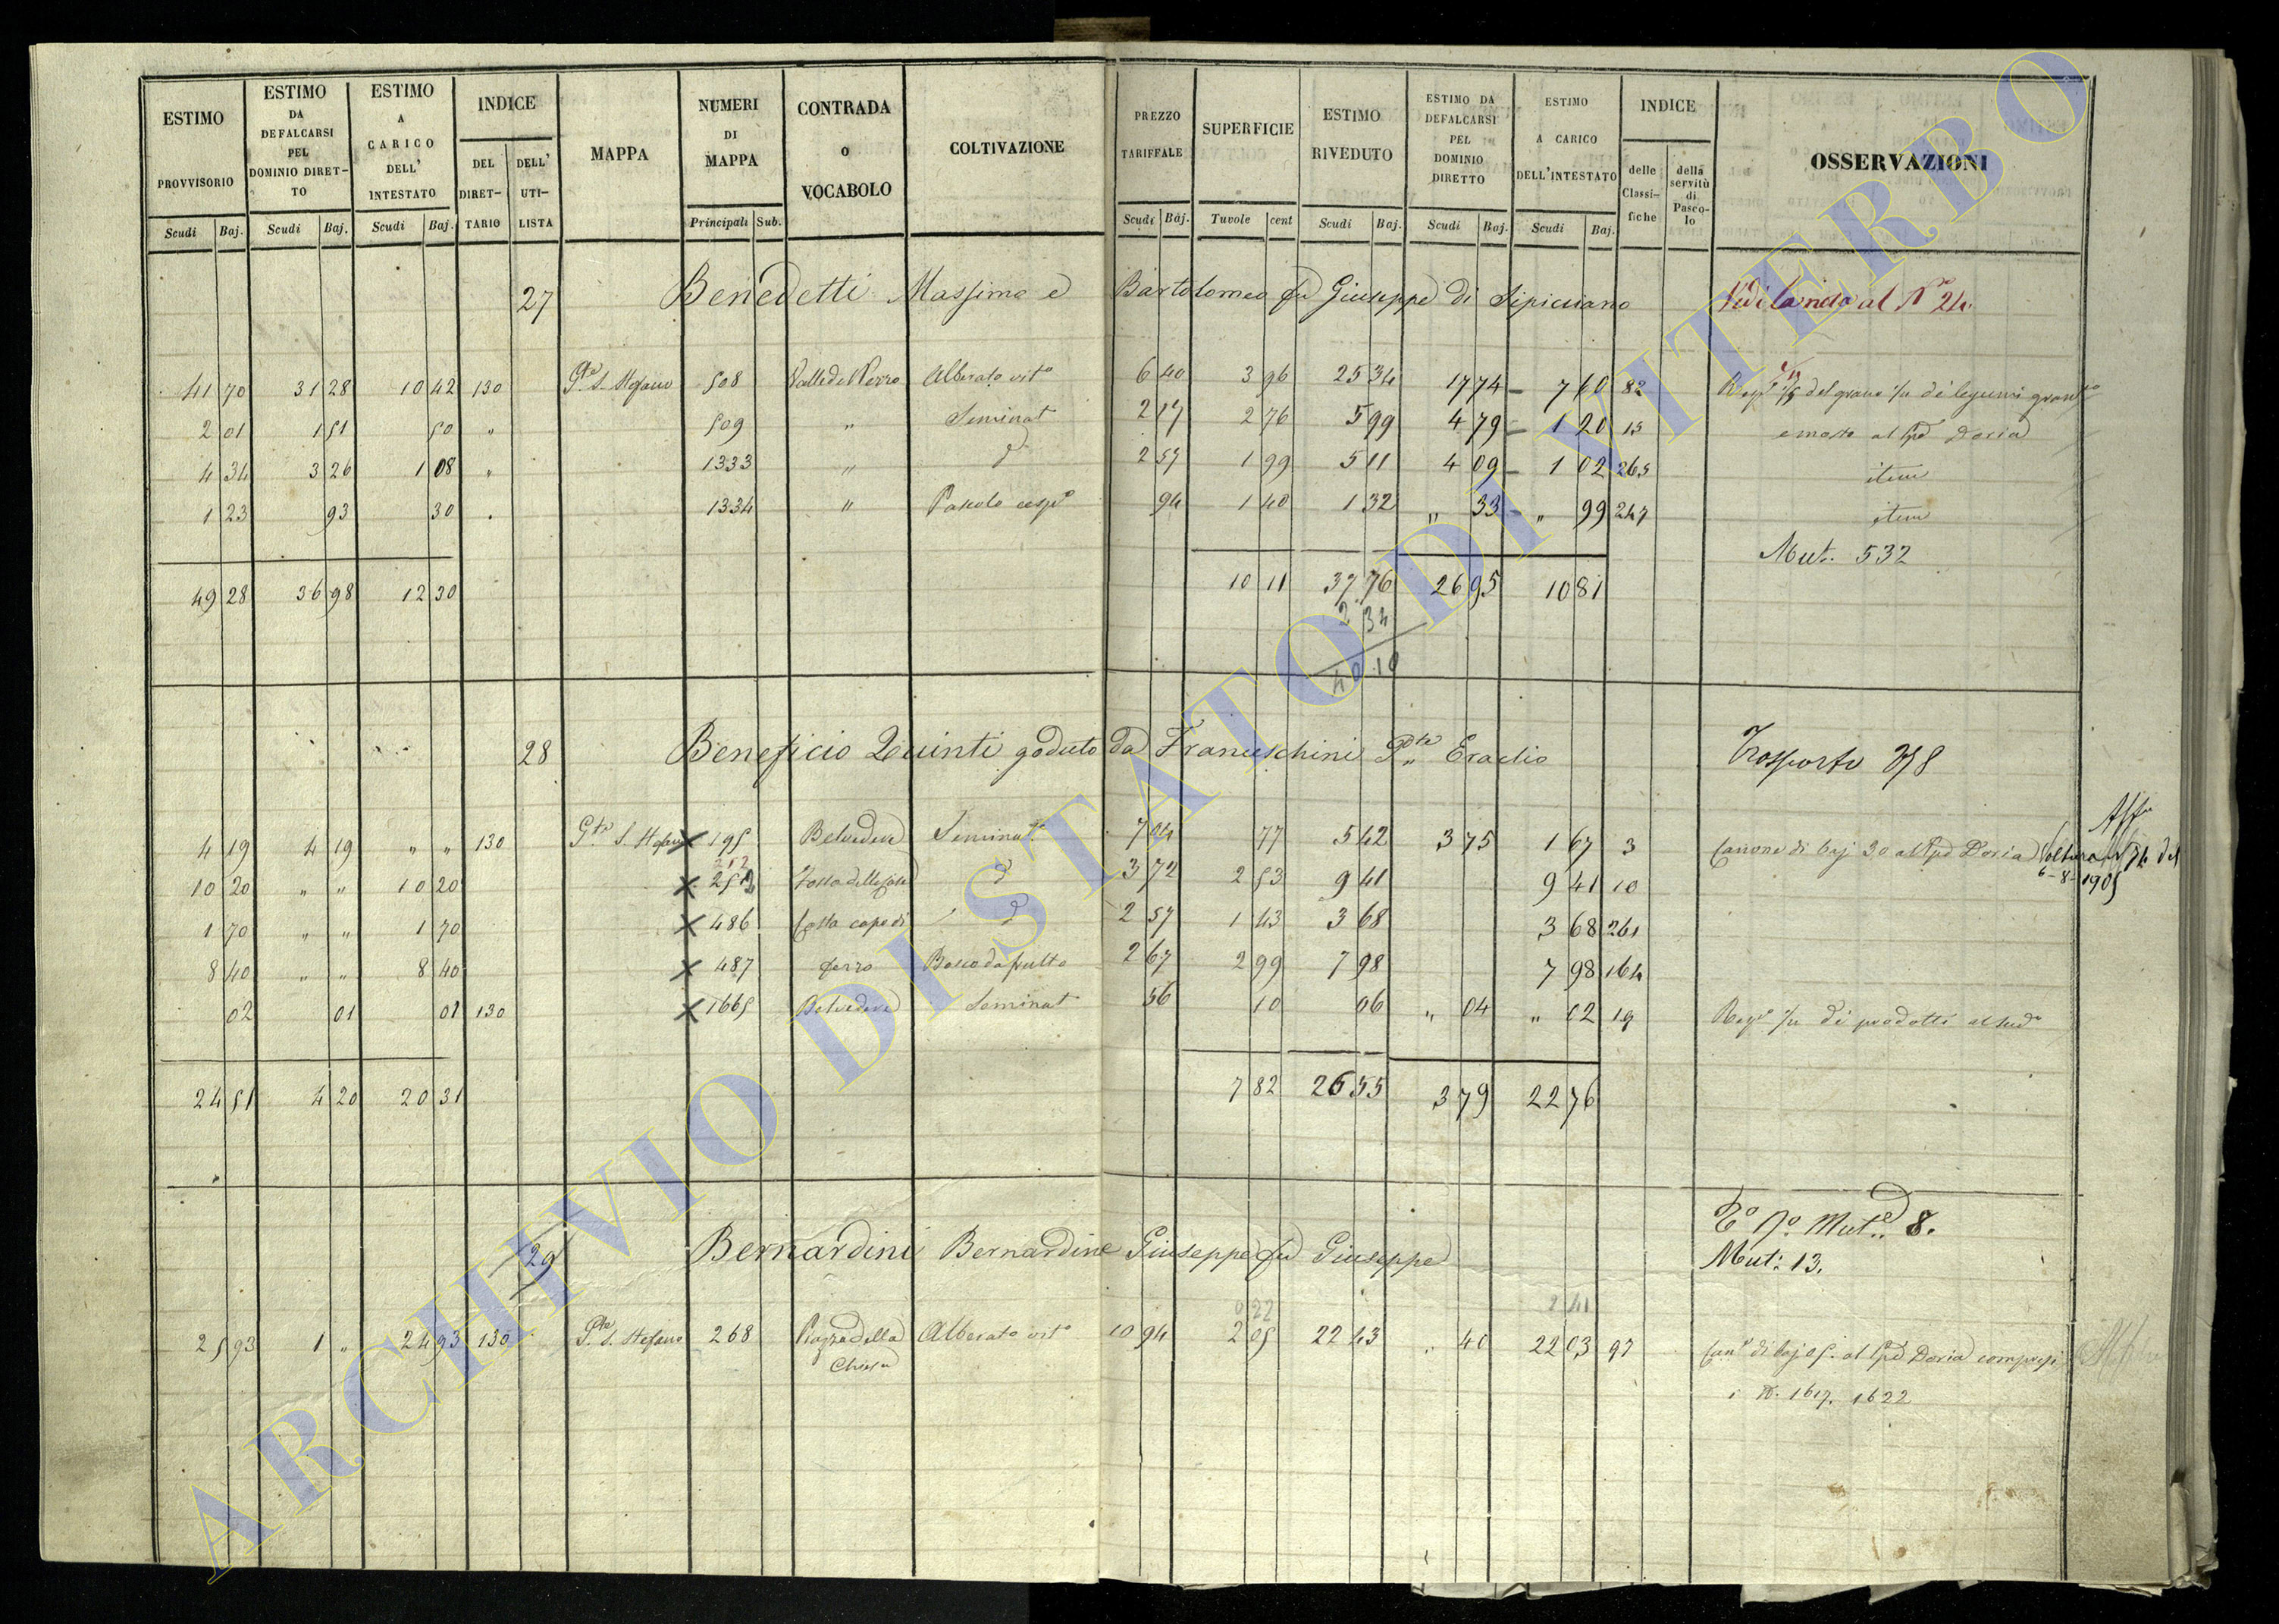 ESTIMO PROVVISORIO | ESTIMO DA DEFALCARSI PEL DOMINIO DIRETTO | ESTIMO A CARICO DELL' INTESTATO | INDICE | MAPPA | NUMERI DI MAPPA | CONTRADA O VOCABOLO | COLTIVAZIONE | PREZZO TARIFFALE | SUPERFICIE | ESTIMO RIVEDUTO | ESTIMO DA DEFALCARSI PEL DOMINIO DIRETTO | ESTIMO A CARICO DELL'INTESTATO | INDICE | OSSERVAZIONI
DEL DIRET-TARIO | DELL' UTI-LISTA | delle Classi-fiche | della servitù di Pasco-lo
Scudi Baj. | Scudi Baj. | Scudi Baj. | Principali Sub. | Scudi Baj. | Tuvole cent | Scudi Baj. | Scudi Baj. | Scudi Baj.
27 Benedetti Massimo e Bartolomeo fu Giuseppe di Sipicciano Vedi la nota al N° 24.
41 70 31 28 10 42 130 Gte S. Stefano 508 Valle del Perro Alberato vito 6 40 3 96 25 34 17 74 7 60 82 del grano di legumi
2 01 1 51 50 " 509 " Seminat 2 17 2 76 5 99 4 79 1 20 15 e mosto al Pd Doria
4 34 3 26 1 08 " 1333 " d° 2 57 1 99 5 11 4 09 1 02 265 item
1 23 93 30 . 1334 " Pascolo cesp° 94 1 40 1 32 " 33 " 99 247 item
Mut. 532
49 28 36 98 12 30 10 11 37 76 26 95 10 81
2 34
40 10
28 Beneficio Quinti goduto da Franceschini Eraclio Trasporto
4 19 4 19 " " 130 Gte S. Stefano 195 Belvedere Seminat° 7 04 77 5 42 3 75 1 67 3 Canone di baj 30 al Pd Doria Voltura N 74 del
6-8-1905
212
10 20 " " 10 20 d° 3 72 2 53 9 41 9 41 10
1 70 " " 1 70 486 capo di d° 2 57 1 43 3 68 3 68 261
8 40 " " 8 40 487 ferro Bosco da frutto 2 67 2 99 7 98 7 98 164
02 01 01 130 1665 Belvedere Seminat 56 10 06 " 04 " 02 19 di prodotti al sud°
24 51 4 20 20 31 7 82 26 55 3 79 22 76
T° N° Mut. 8.
29 Bernardini Bernardino Giuseppe fu Giuseppe Mut: 13.
0 22 2 41
25 93 1 " 24 93 130 Pte S. Stefano 268 Piazza della Chiesa Alberato vit° 10 94 2 05 22 43 " 40 22 03 97 Can° di baj 05 al Pd Doria compresi
i N. 1617. 1622
ARCHIVIO DI STATO DI VITERBO